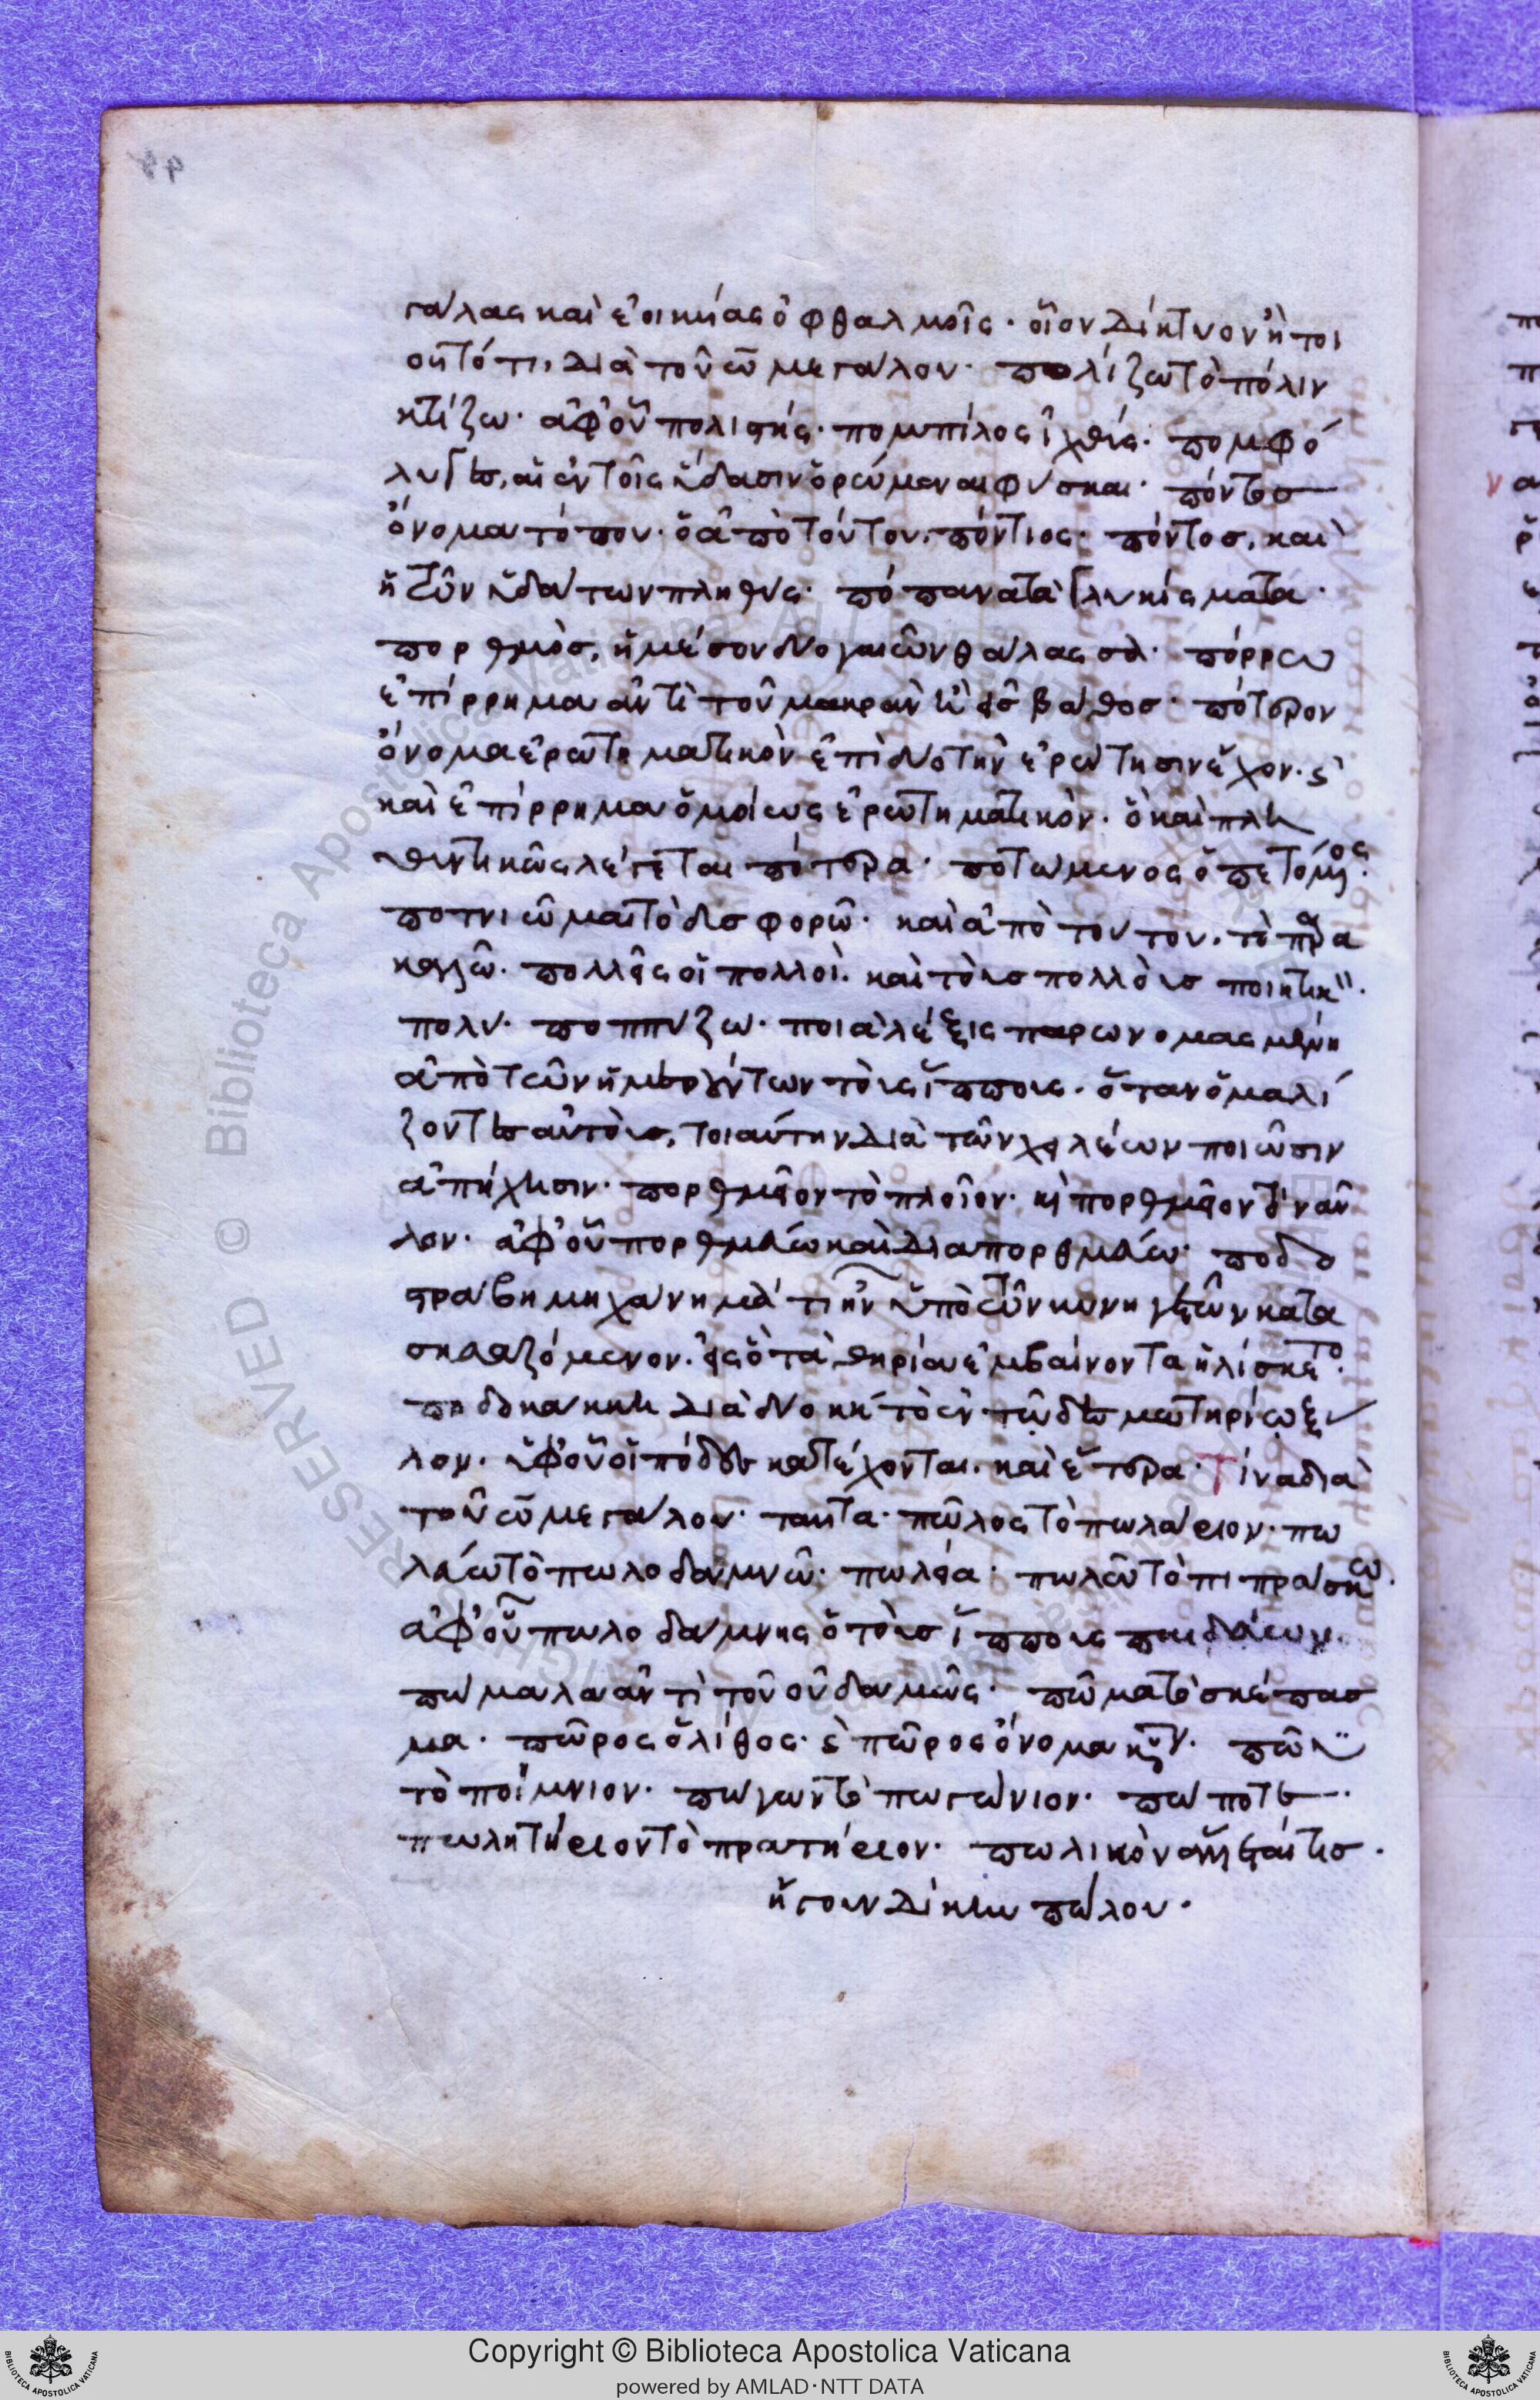 γάλας καὶ ἐοικυίας ὀφθαλμοῖς· οἷον δίκτυον ἤτοι
διὰ τοῦ ω μεγάλου· πολίζω τὸ πόλιν
κτίζω· ἀφ' οὗ πολιστής· πομπίλος ἰχθύς· πομφό
λυγες, αἱ ἐν τοῖς ὕδασιν ὁρώμεναι φύσκαι· πόντος
ὄνομα τόπου· ὁ ἀπὸ τούτου, πόντιος· πόντος, καὶ
ἡ τῶν ὑδάτων πληθύς· πόπανα τὰ γλυκίσματα·
πορθμὸς, ἡ μέσον δύο γαιῶν θάλασσα· πόρρω
ἐπίρρημα ἀντὶ τοῦ μακρὰν ἢ εἰς βάθος· πότερον
ὄνομα ἐρωτηματικὸν ἐπὶ δύο τὴν ἐρώτησιν ἔχον· ϛ
καὶ ἐπίρρημα ὁμοίως ἐρωτηματικὸν· ὃ καὶ πλη
θυντικῶς λέγεται πότερα· ποτώμενος ὁ πετόμενος·
ποτνιῶμαι τὸ δυσφορῶ· καὶ ἀπὸ τούτου, τὸ παρα
καλῶ· πολλεῖς οἱ πολλοί· καὶ τοὺς πολλοὺς ποιητικ
πολυ· ποππύζω· ποιὰ λέξις παρωνομασμένη
ἀπὸ τῶν ἡμερούντων τοὺς ἵππους· ὅταν ὁμαλί
ζοντες αὐτοὺς, τοιαύτην διὰ τῶν χειλέων ποιῶσιν
ἀπήχησιν· πορθμεῖον τὸ πλοῖον· καὶ πορθμεῖον τὸ ναῦ
λον· ἀφ' οὗ πορθμεύω καὶ διαπορθμεύω· ποδο
στράβη μηχάνημά τι ἦν ὑπὸ τῶν κυνηγετῶν κατα
σκευαζόμενον· εἰς ὃ τὰ θηρία ἐμβαίνοντα ἡλίσκετο·
ποδοκάκκη διὰ δύο κκ τὸ ἐν τῷ δεσμωτηρίῳ ξύ
λον· ὑφ' οὗ οἱ πόδες κατέχονται· καὶ ἕτερα· Τίνα διὰ
τοῦ ω μεγάλου· ταῦτα· πῶλος τὸ πωλάριον· πω
λεύω τὸ πωλοδαμνῶ· πωλεία· πωλῶ τὸ πιπράσκω·
ἀφ' οὗ πωλοδάμνης ὁ τοὺς ἵππους παιδεύων·
πώμαλα ἀντὶ τοῦ οὐδαμῶς· πῶμα τὸ σκέπασ
μα· πῶρος ὁ λίθος· ϛ πῶρος ὄνομα κύριον· πῶυ
τὸ ποίμνιον· πώγων τὸ πωγώνιον· πώποτε
πωλητήριον τὸ πρατήριον· πωλικὸν
ἤγουν δίκην πώλου·